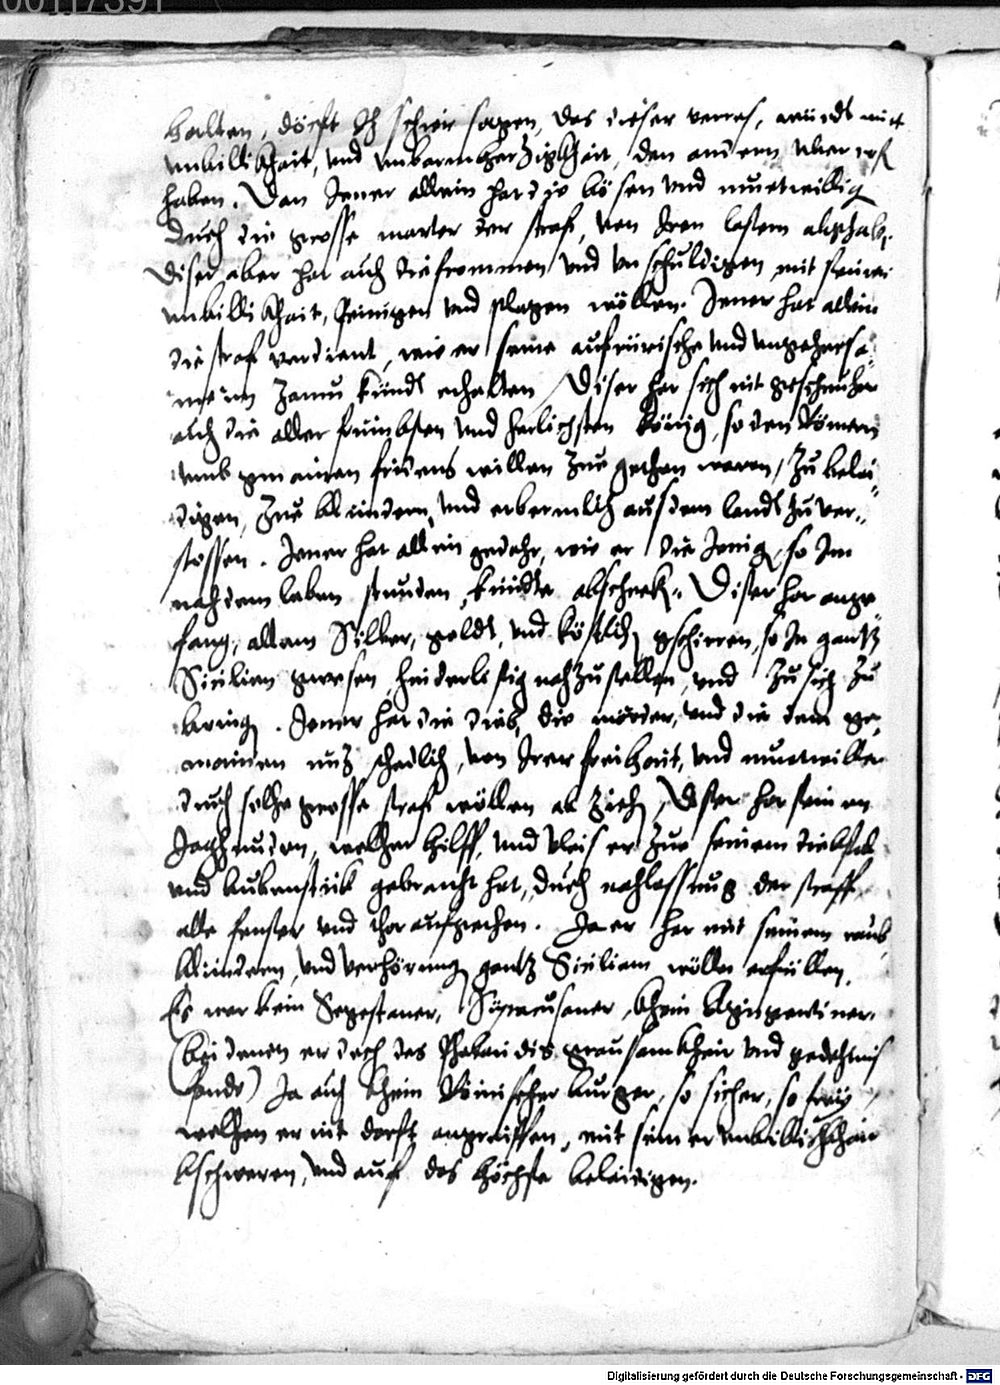 00117391
halten, dörfft Ich schier sagen, das dieser verres, wurdt mit
unbillikhait, und unbarmherzigkhait, den andern ubertrof
haben. Dan Jener allein hat die bösen und muetwillig
durch die grosse marter der straf, von Iren lastern abgehalt.
Diser aber hat auch die frommen und unschuldigen mit seiner
unbillikhait, Peinigen und plagen wöllen. Jener hat allein
die straf verdient, wie er seine aufrürische und ungehorsa=
me im zamu kündt erhalten / Diser hat sich nit gescheuhet
auch die aller frumbsten und herlichsten König, so den Römern
umb gmainen fridens willen zue gethan waren, zu belai=
digen, zue blündern, und erbermlich aus dem landt zu ver=
stossen. Jener hat allein gedacht, wie er die Jenig, so Im
nach dem leben stunden, kündte abschrek. Diser hat ange=
fang, allem Silber, goldt, und köstlich gschirren, so In gantz
Sicilien gwesen, hinderlistig nachzustellen, und zu sich zu
bring. Jener hat die dieb, die mörder, und die dem ge=
mainen nuz schedlich, von Irer freihait, und muetwillen
durch solhe grosse straf wöllen ab zieh, Diser hat seinen
welher hilff, und vleis er zue seinem diebstal
und bubenstük gebraucht hat, durch nachlassung der straff,
alle fenster und thor aufgethan. Ja er hat mit seinem raub,
blündern, und verhörung gantz Sicilien wöllen erfüllen.
Es war kein Segestaner, Siracusaner, khain Agrigentiner,
(bei denen er doch des Phalaridis grausamkhait und gedechtnis
fande) Ja auch khein Römischer burger, so sicher, so frey,
welhen er nit dorft angreiffen, mit seiner unbillichkhait
bschweren, und auf das höchste belaidigen.
Digitalisierung gefördert durch die Deutsche Forschungsgemeinschaft - DFG